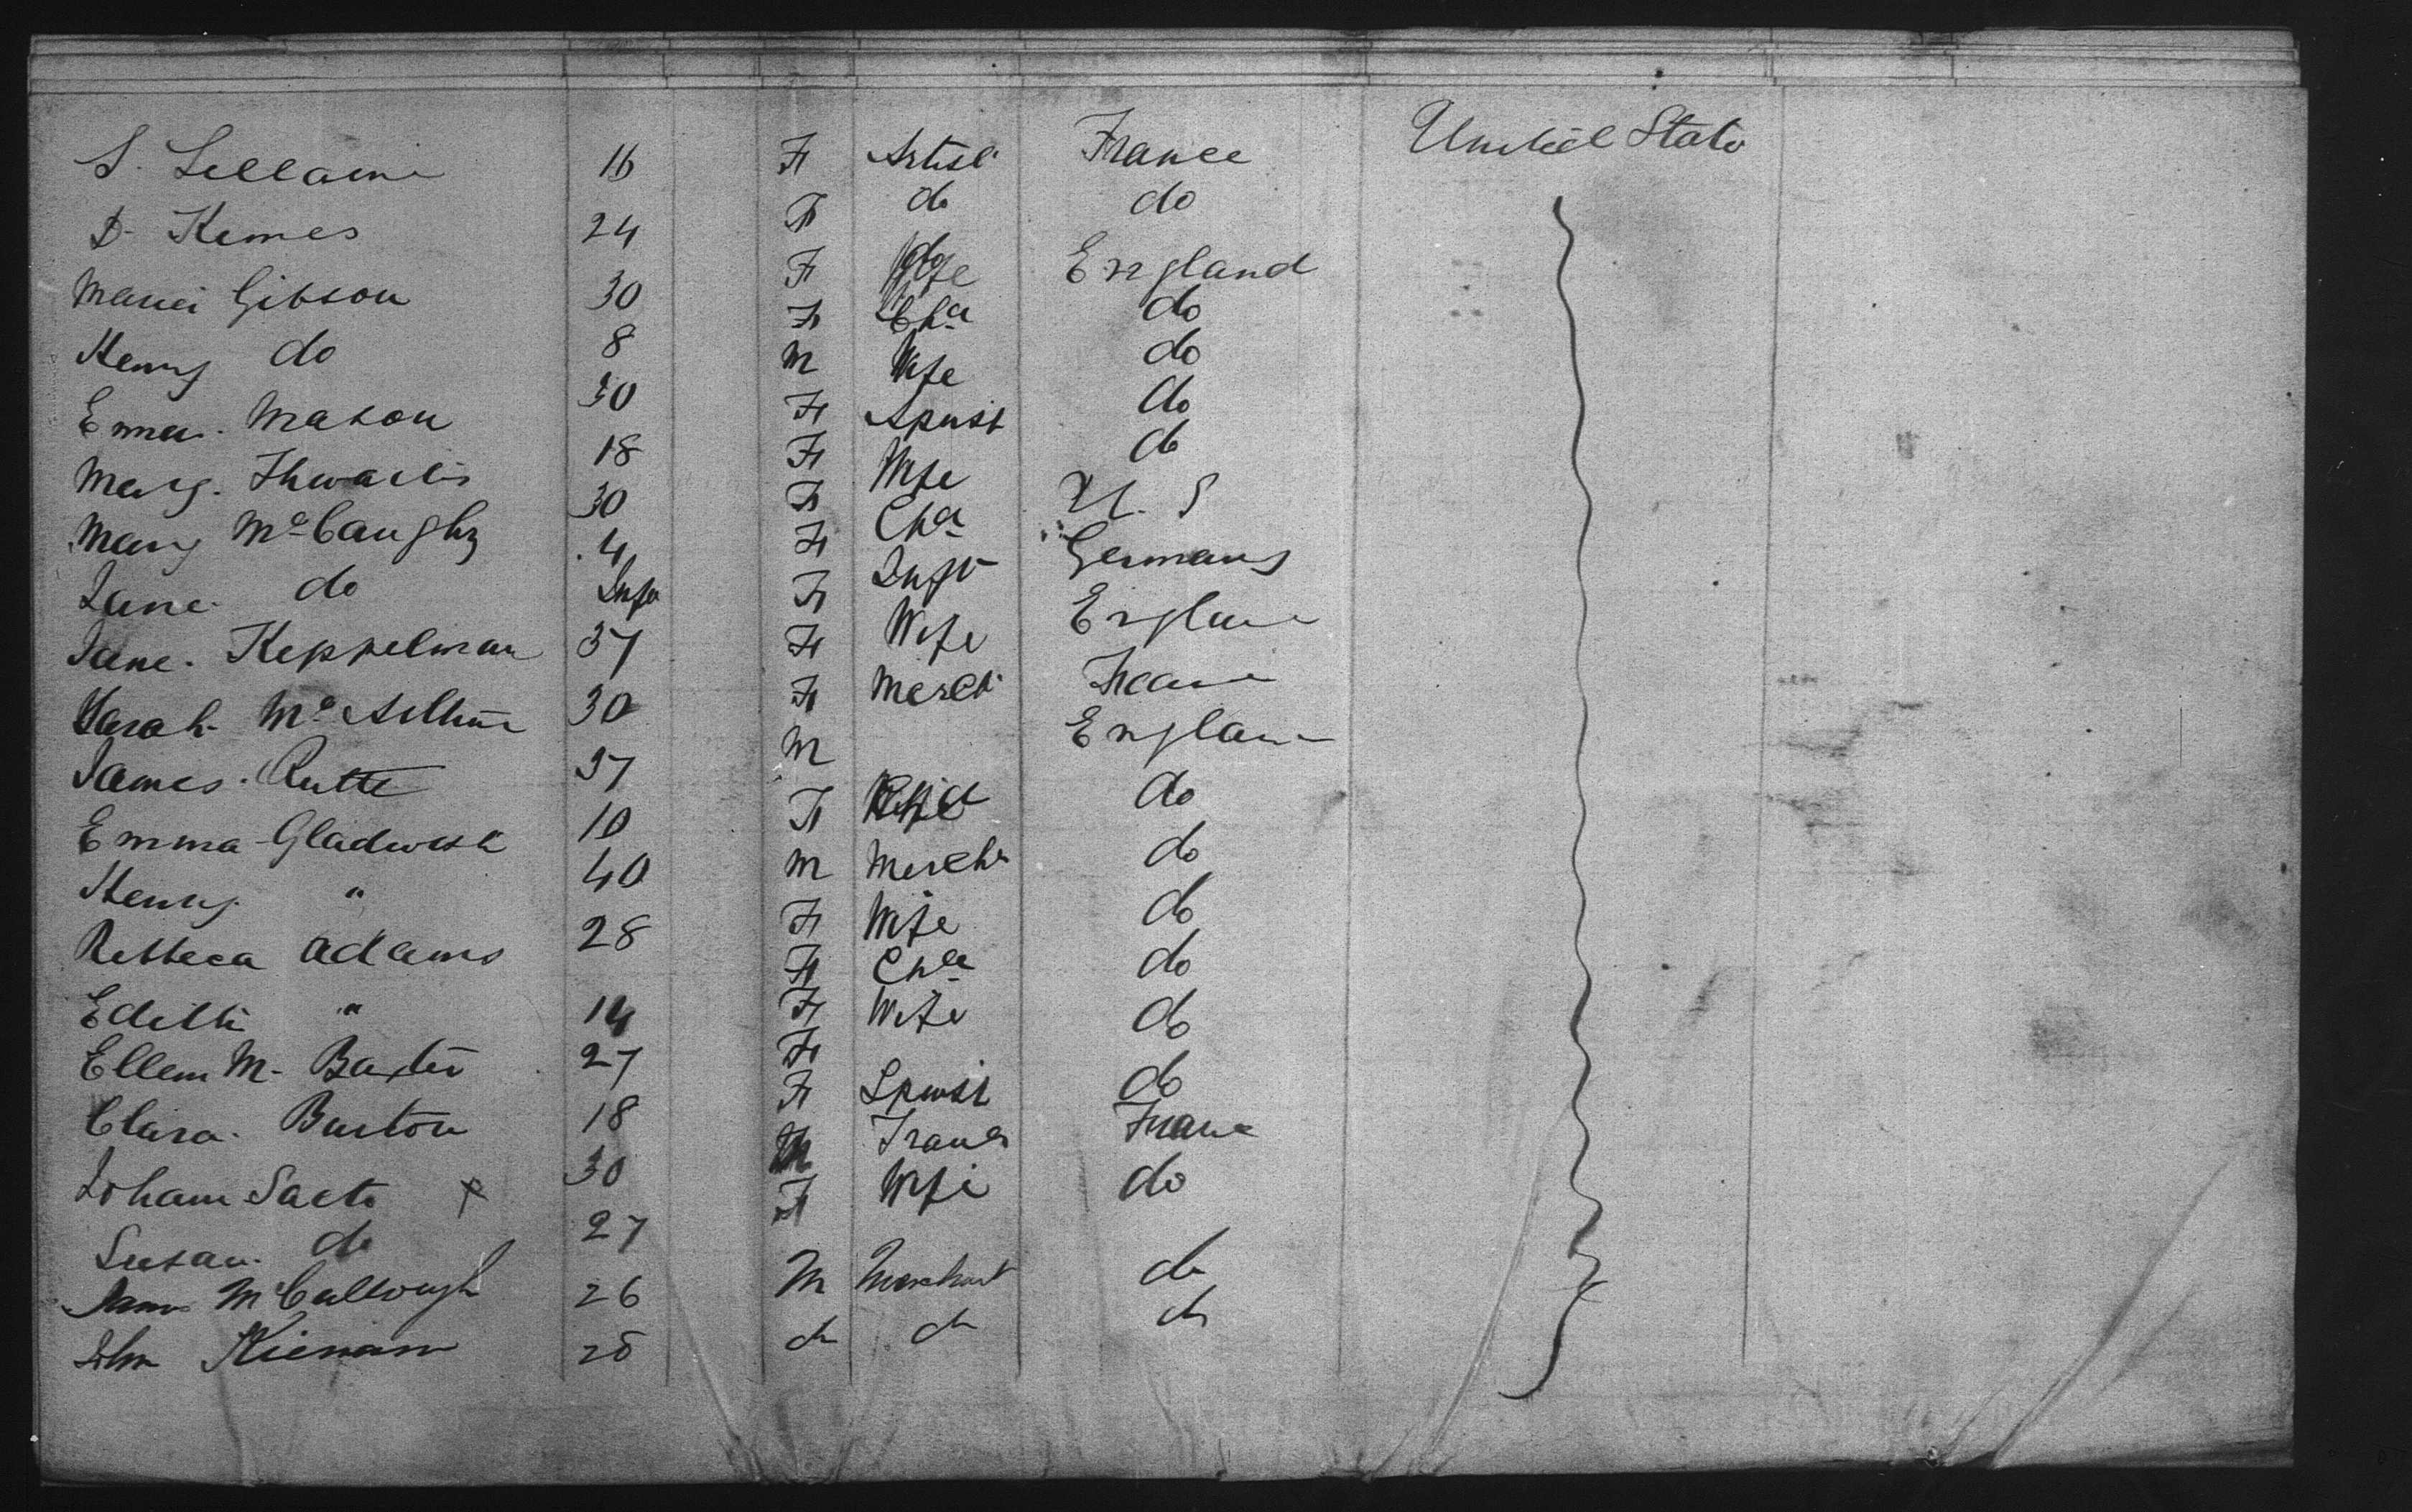 S. Lellaime 16 F Artist France United States
D. Kemes 24 F do do
Manei Gibson 30 F Wife England
Henry do 8 F Chd do
Emma. Mason 30 M Wife do
Mary. Thwaites 18 F Spinst do
Mary McCaughy 30 F Wife do
Jane. do 4 F Chd U. S
Jane. Keppelman Infa F Inft Germany
Sarah. McArthur 37 F Wife England
James. Rutte 30 F Mercht France
Emma Gladwish 37 M England
Henry. " 10 F Chd do
Rebbeca Adams 40 M Mercht do
Edith " 28 F Wife do
Ellem M. Baxter 14 F Chd do
Clara. Burton 27 F Wife do
Joham Sacto x 18 F Spinst do
Susan. do 30 M France
27 F Wife do
James McCullough 26 M Merchant do
John Kiernan 25 do do do